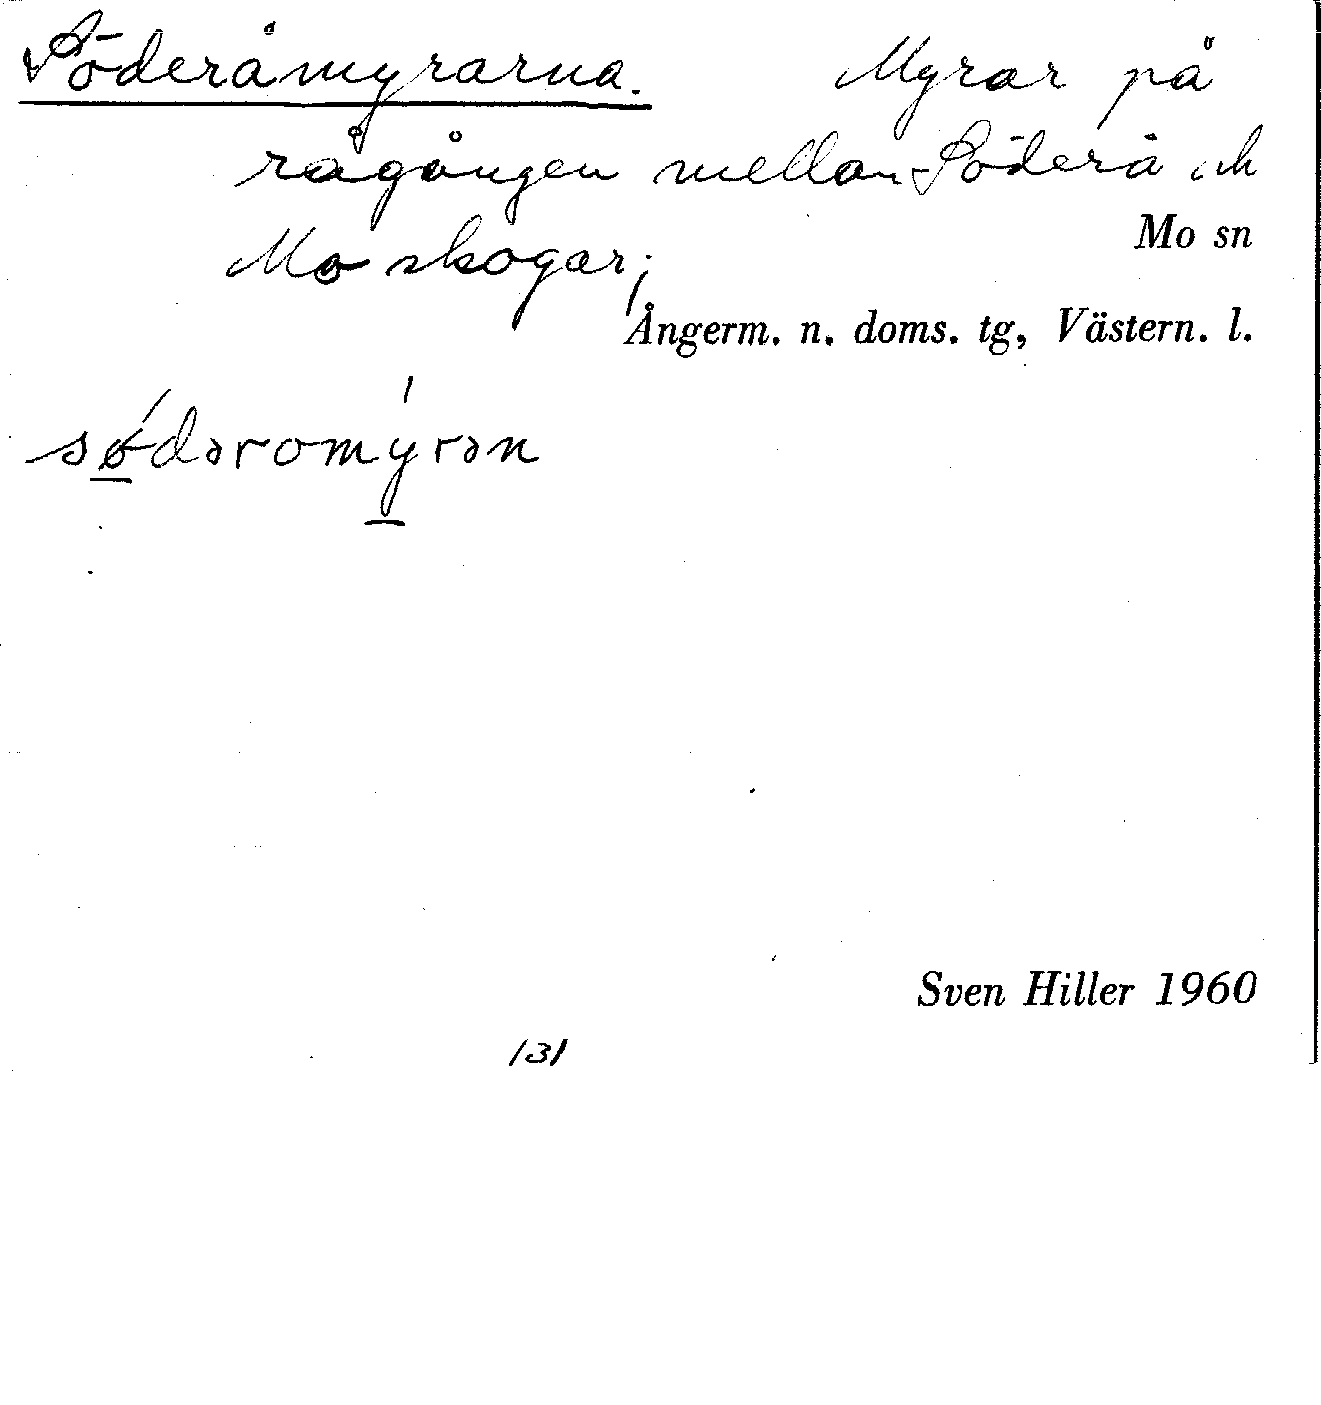 Söderåmyrarna. Myrar på
rågången mellan Söderå och
Mo skogar;
Mo sn
Ångerm. n. doms. tg, Västern. l.
sǿ̱dəromý̱rən
Sven Hiller 1960
131